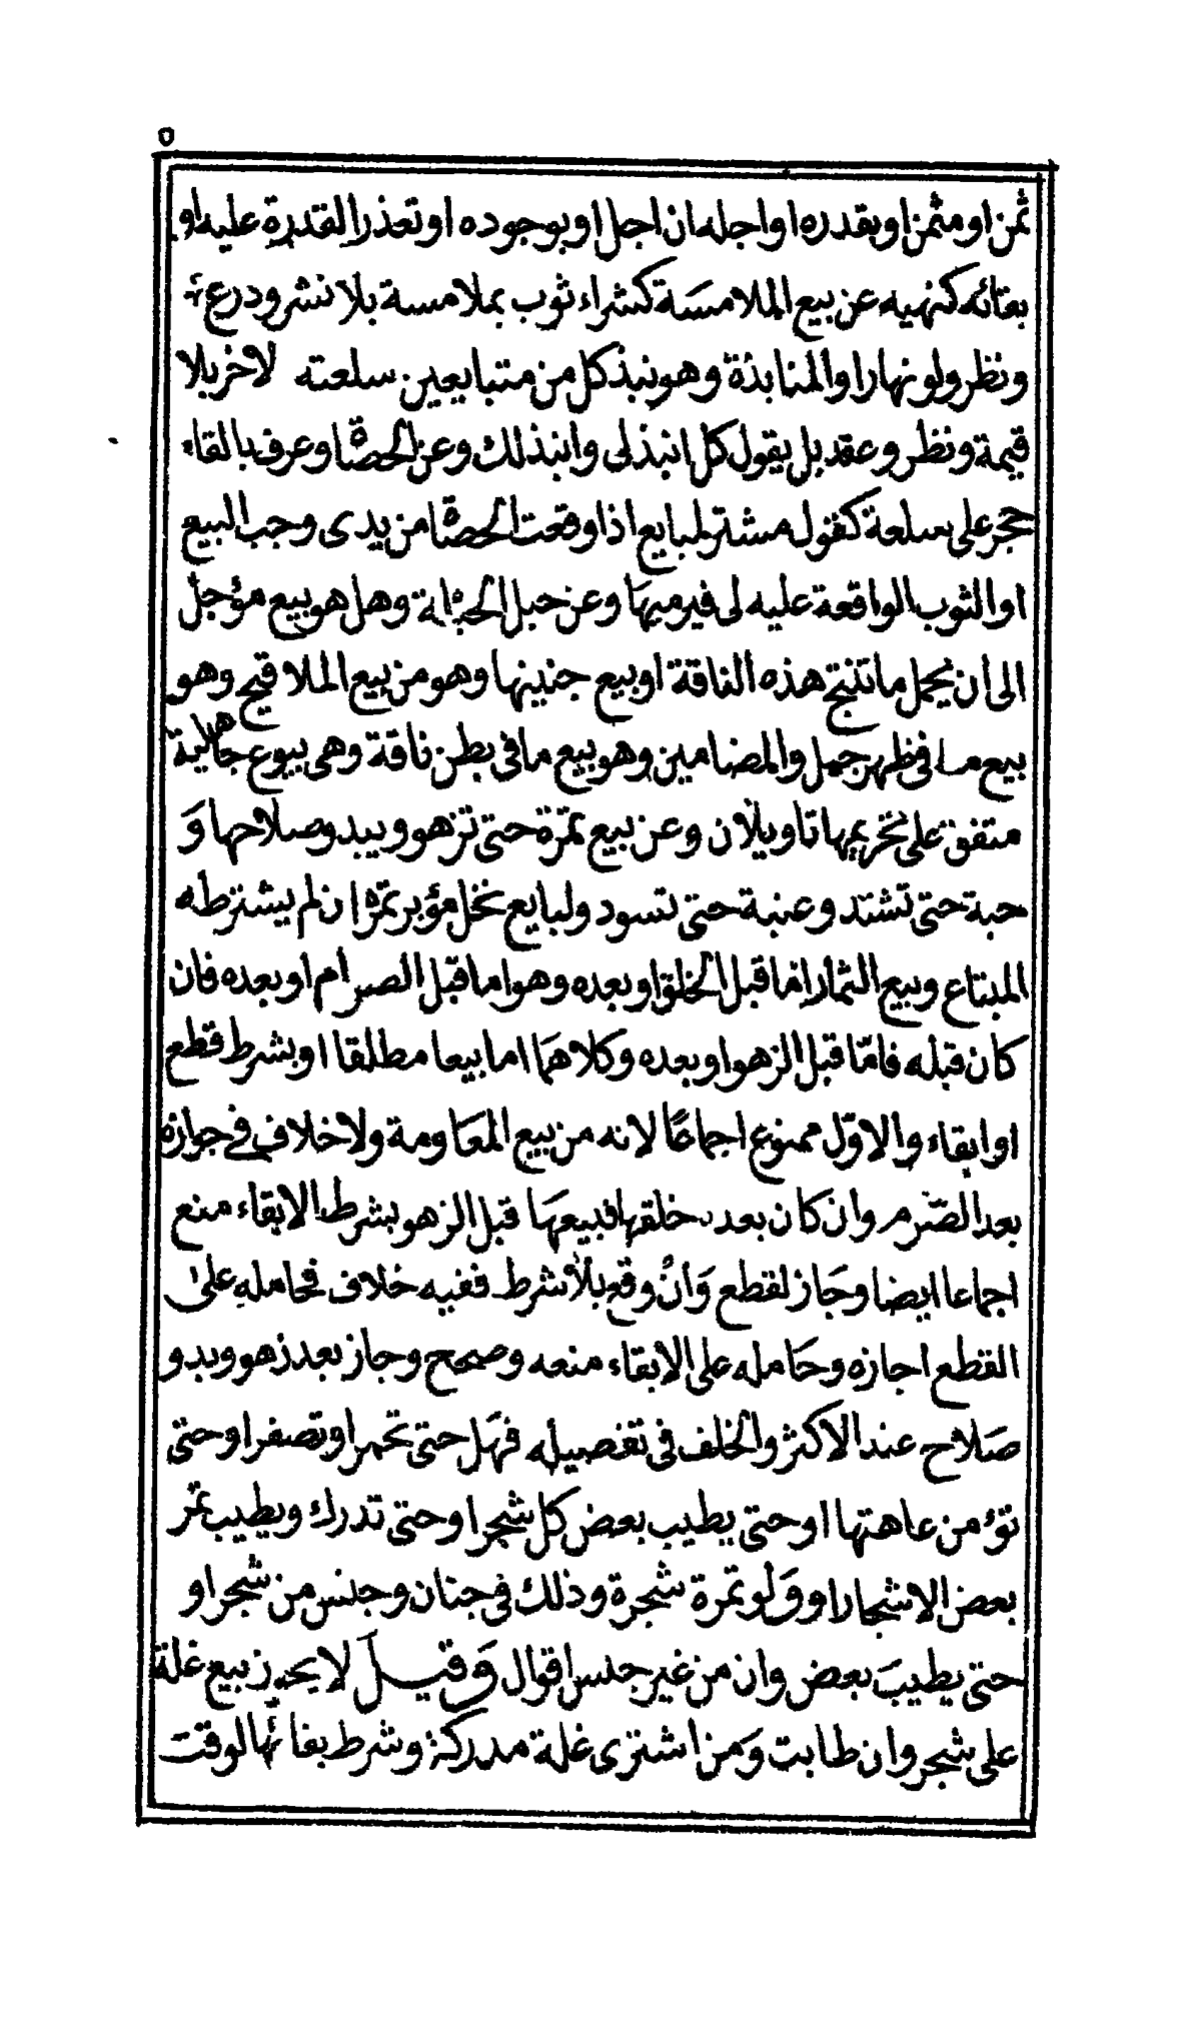 ٥
ثمن او مثمن او بقدره او اجله ان اجل او بوجوده او تعذر القدرة عليه او
بقائه كنهيه عن بيع الملامسَة كشراء ثوب بملامسة بلا نشر ودرع
ونظر ولو نهارا والمنابذة وهو نبذ كل من متبايعين سلعته لاخر بلا
قيمة ونظر وعقد بل يقول كل انبذ لى وانبذ لك وعن الحصاة وعرف بالقاء
حجر على سلعة كقول مشتر لمبايع اذا وقعت الحصاة من يدى وجب البيع
او الثوب الواقعة عليه لى فيرميهَا وعن حبل الحبالة وهل هو بيع مؤجل
الى أن يحمل ما تنتج هذه الناقة او بيع جنينها وهو من بيع الملاقيح وهو
بيع ما فى ظهر جمل والمضامين وهو بيع ما فى بطن ناقة وهى بيوع جاهلية
متفق على تحريمها تاويلان وعن بيع تمرة حتى تزهو ويبدو صلاحها وَ
حبة حتى تشتد وعنبة حتى تسود ولبايع نخل مؤبر تمره ان لم يشترطه
المبتاع وبيع الثمار امّا قبل الخلق او بعده وهو اما قبل الصرام او بعده فان
كان قبله فامّا قبل الزهو او بعده وكلاهمَا اما بيعا مطلقا او بشرط قطع
او ابقاء والاوّل ممنوع اجماعًا لانه من بيع المعَاومة ولا خلاف فى جوازه
بعد الصّرم وان كان بعد خلقها فبيعهَا قبل الزهو بشرط الابقاء منع
اجماعا ايضا وجَاز لقطع وَانْ وقع بلا شرط ففيه خلاف فحامله على
القطع اجازه وحَامله على الابقاء منعه وصحح وجاز بعد زهو وبدو
صَلاح عند الاكثر والخلف فى تفصيله فهَل حتى تحمر او تصفر او حتى
تؤمن عاهتها او حتى يطيب بعض كل شجر او حتى تدرك ويطيب تمر
بعض الاشجار او وَلو تمرة شجرة وذلك فى جنان وجنس من شجر او
حتى يطيبَ بعض وان من غير جنس اقوال وَقيل لا يجوز بيع غلة
على شجر وان طابت وَمن اشترى غلة مدركة وشرط بقائها لوقت